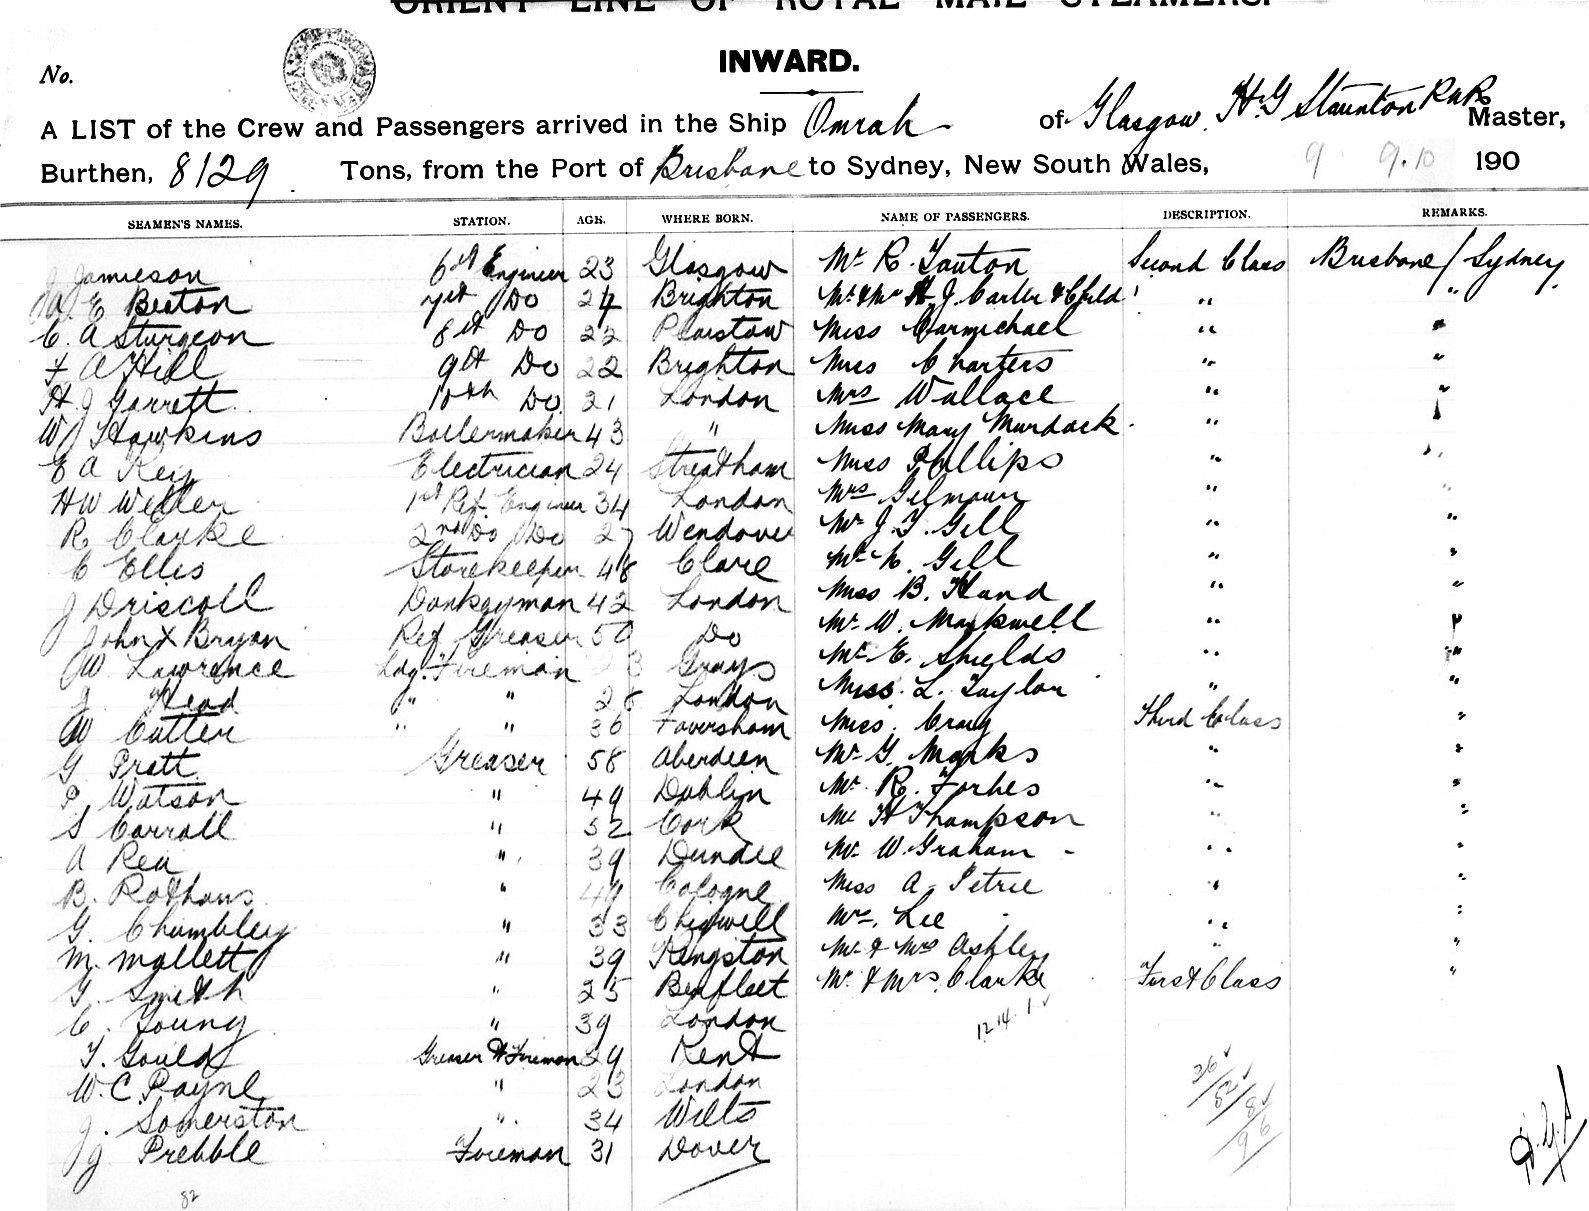 ORIENT LINE OF ROYAL MAIL STEAMERS.
INWARD.
No.
A LIST of the Crew and Passengers arrived in the Ship Omrah of Glasgow, H. G Staunton RNR Master,
Burthen, 8129 Tons, from the Port of Brisbane to Sydney, New South Wales, 9 9.10 190
SEAMEN'S NAMES. STATION. AGE. WHERE BORN. NAME OF PASSENGERS. DESCRIPTION. REMARKS.
J Jamieson 6th Engineer 23 Glasgow Mr R. Tauton Second Class Brisbane / Sydney
W. E Beeton 7th Do 24 Brighton Mr & Mrs H. J. Carter & Child " "
C. A Sturgeon 8th Do 22 Plaistow Miss Carmichael " "
F A Hill 9th Do 22 Brighton Miss Charters " "
H J Garrett 10th Do 21 London Mrs Wallace " "
W J Hawkins Boilermaker 43 " Miss Mary Murdock " "
E A Key Electrician 24 Streatham Miss Phillips " "
H W Weller 1st Ref. Engineer 34 London Mrs Gilmour " "
R Clarke 2nd Do Do 27 Wendover Mr J. T. Gill " "
C Ellis Storekeeper 48 Clare Mr N. Gill " "
J Driscoll Donkeyman 42 London Miss B. Hand " "
John X Bryan Ref Greaser 50 Do Mr W. Markwell " "
W Lawrence Ldg. Fireman 3 Grays Mr E. Shields " "
J. Head " " 28 London Miss. L. Taylor " "
W Cutter " " 36 Faversham Miss. Craig Third Class "
G Pratt Greaser 58 Aberdeen Mr G. Marks " "
P. Watson " 49 Dublin Mr R. Forbes " "
S Carroll " 52 Cork Mr H Thompson " "
A Rea " 39 Dundee Mr W. Graham - " "
B. Rothaus " 49 Cologne Miss A. Petrie " "
G. Chumbley " 33 Chigwell Mrs. Lee " "
M. Mallett " 39 Kingston Mr & Mrs Ashley " "
G. Smith " 25 Benfleet Mr. & Mrs. Clarke First Class "
C. Young " 39 London 12 14. 1.
T. Gould Greaser & Fireman 29 Kent
W. C. Payne " 23 London
J. Somerston " 34 Wilts
J Prebble Fireman 31 Dover
82